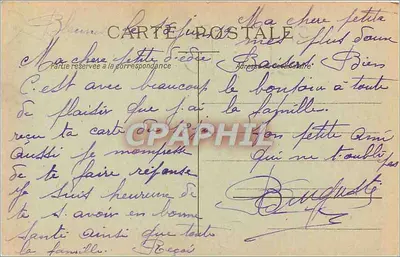 CARTE POSTALE
Partie réservée à la correspondance
le 15
Ma chere petite
C'est avec beaucoup
de plaisir que j'ai
reçu ta carte
aussi je
de te faire réponse
je suis heureuse de
te savoir en bonne
santé ainsi que toute
la famille. Reçoi
Ma chere petite
mes plus doux
Baisers. Bien
le bonjour a toute
la famille.
Ton petite ami
qui ne t'oublie pas
CPAPHIL